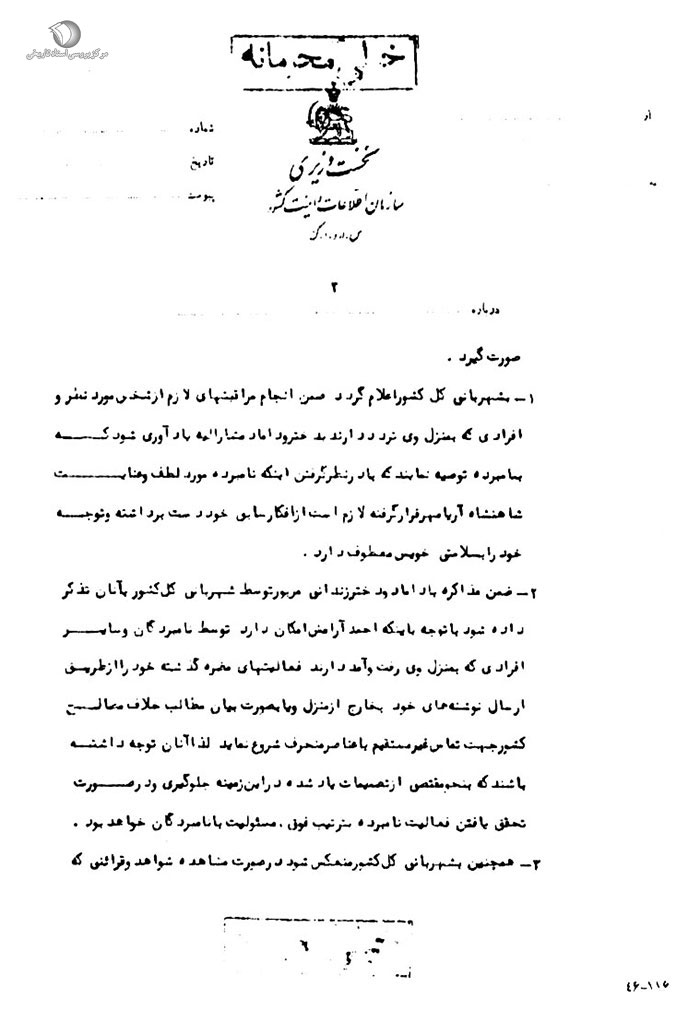 مرکز بررسی اسناد تاریخی
خیلی محرمانه
از
شماره
تاریخ
به
پیوست
نخست وزیری
سازمان اطلاعات و امنیت کشور
س.ا.و.ا.ک
۲
درباره
صورت گیرد .
۱ـ بشهربانی کل کشور اعلام گردد ضمن انجام مراقبتهای لازم از شخص مورد نظر و
افرادی که بمنزل وی تردد دارند بدختر و داماد مشارالیه یادآوری شود که
بنامبرده توصیه نمایند که با در نظر گرفتن اینکه نامبرده مورد لطف و عنایت
شاهنشاه آریامهر قرار گرفته لازم است از افکار سابق خود دست برداشته و توجه
خود را بسلامتی خویش معطوف دارد .
۲ـ ضمن مذاکره با داماد و دختر زندانی مزبور توسط شهربانی کل کشور بآنان تذکر
داده شود باتوجه باینکه احمد آرامش امکان دارد توسط نامبردگان و سایر
افرادی که بمنزل وی رفت و آمد دارند فعالیتهای مضره گذشته خود را از طریق
ارسال نوشته‌های خود بخارج از منزل و یا بصورت بیان مطالب خلاف مصالح
کشور جهت تماس غیر مستقیم با عناصر منحرف شروع نماید لذا آنان توجه داشته
باشند که بنحو مقتضی از تصمیمات یاد شده در این زمینه جلوگیری و در صورت
تحقق یافتن فعالیت نامبرده بترتیب فوق ، مسئولیت با نامبردگان خواهد بود .
۳ـ همچنین بشهربانی کل کشور منعکس شود در صورت مشاهده شواهد و قرائنی که
۴۶-۱۱۶